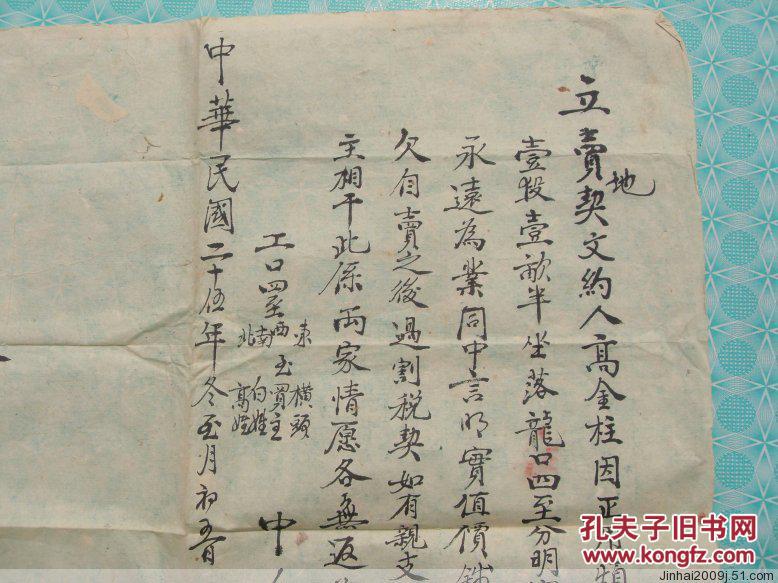 立賣地契文約人髙金柱因正用
壹段壹畝半坐落龍口四至分明
永遠為業同中言明實值價錢
欠自賣之後過割税契如有親支
主相干此係两家情愿各無返
工口四至
東横頭
西至買主
南白姓
北髙姓
中
中華民國二十伍年冬至月初五日
孔夫子旧书网
www.kongfz.com
Jinhai2009j.51.com